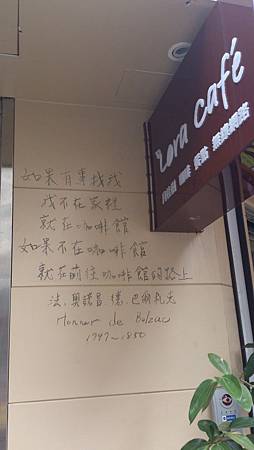 Lora café
咖啡 餐飲 無線網路
如果有事找我
我不在家裡
就在咖啡館
如果不在咖啡館
就在前往咖啡館的路上
法．奧諾當 德．巴爾札克
Honnor de Balzac
1797~1850